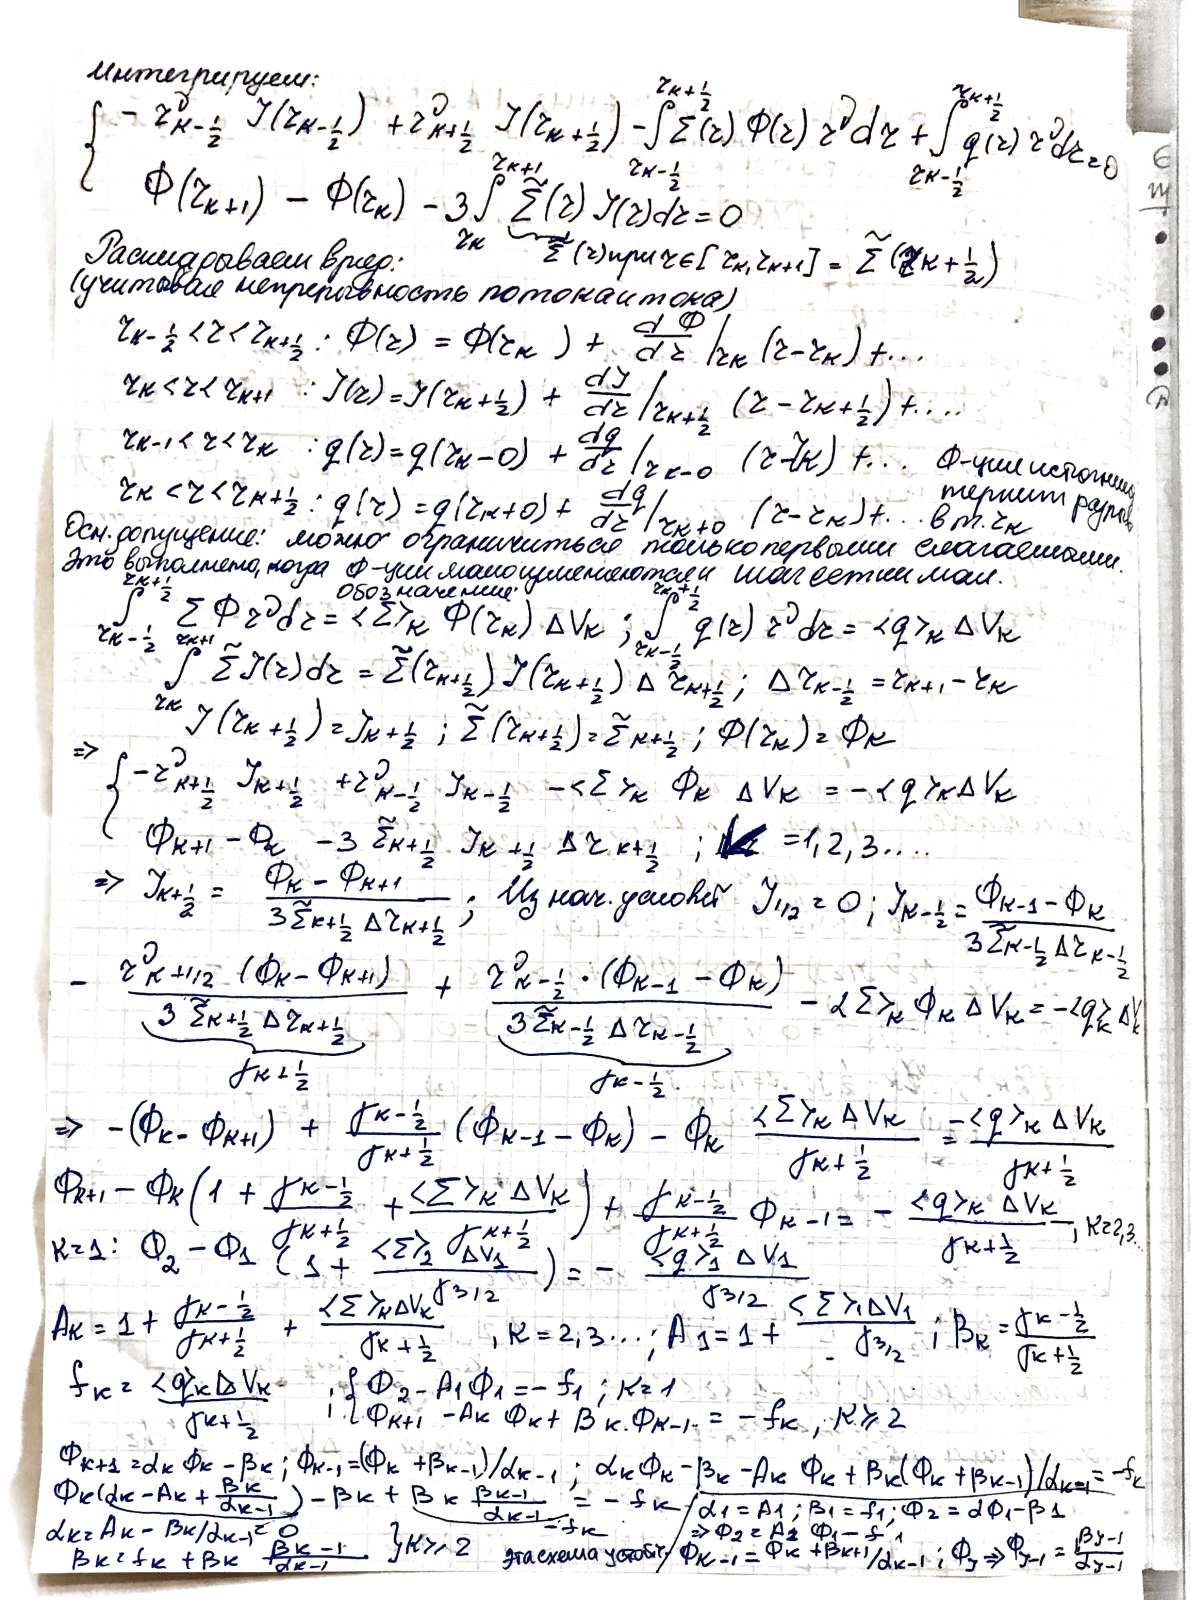 Интегрируем:
{ - r^ν_{k-1/2} J(r_{k-1/2}) + r^ν_{k+1/2} J(r_{k+1/2}) - ∫_{r_{k-1/2}}^{r_{k+1/2}} Σ(r) Φ(r) r^ν dr + ∫_{r_{k-1/2}}^{r_{k+1/2}} q(r) r^ν dr = 0
Φ(r_{k+1}) - Φ(r_k) - 3 ∫_{r_k}^{r_{k+1}} Σ̃(r) J(r) dr = 0
Σ̃(r) при r ∈ [r_k, r_{k+1}] = Σ̃(r_{k+1/2})
Раскладываем в ряд:
(учитывая непрерывность потока и тока)
r_{k-1/2} < r < r_{k+1/2} : Φ(r) = Φ(r_k) + dΦ/dr |_{r_k} (r - r_k) + ...
r_k < r < r_{k+1} : J(r) = J(r_{k+1/2}) + dJ/dr |_{r_{k+1/2}} (r - r_{k+1/2}) + ....
r_{k-1} < r < r_k : q(r) = q(r_k - 0) + dq/dr |_{r_k-0} (r - r_k) + ... Ф-ции источника
r_k < r < r_{k+1/2} : q(r) = q(r_k + 0) + dq/dr |_{r_k+0} (r - r_k) + ... терпит разрыв в т. r_k
Осн. допущение: можно ограничиться только первыми слагаемыми.
Это выполнено, когда ф-ции мало изменяются и шаг сетки мал.
Обозначение:
∫_{r_{k-1/2}}^{r_{k+1/2}} Σ Φ r^ν dr = <Σ>_k Φ(r_k) ΔV_k ; ∫_{r_{k-1/2}}^{r_{k+1/2}} q(r) r^ν dr = <q>_k ΔV_k
∫_{r_k}^{r_{k+1}} Σ̃ J(r) dr = Σ̃(r_{k+1/2}) J(r_{k+1/2}) Δr_{k+1/2} ; Δr_{k-1/2} = r_{k+1} - r_k
J(r_{k+1/2}) = J_{k+1/2} ; Σ̃(r_{k+1/2}) = Σ̃_{k+1/2} ; Φ(r_k) = Φ_k
=> { - r^ν_{k+1/2} J_{k+1/2} + r^ν_{k-1/2} J_{k-1/2} - <Σ>_k Φ_k ΔV_k = - <q>_k ΔV_k
Φ_{k+1} - Φ_k - 3 Σ̃_{k+1/2} J_{k+1/2} Δr_{k+1/2} ; k = 1, 2, 3....
=> J_{k+1/2} = (Φ_k - Φ_{k+1}) / (3 Σ̃_{k+1/2} Δr_{k+1/2}) ; Из нач. условий J_{1/2} = 0 ; J_{k-1/2} = (Φ_{k-1} - Φ_k) / (3 Σ̃_{k-1/2} Δr_{k-1/2})
- r^ν_{k+1/2} (Φ_k - Φ_{k+1}) / (3 Σ̃_{k+1/2} Δr_{k+1/2}) + r^ν_{k-1/2} · (Φ_{k-1} - Φ_k) / (3 Σ̃_{k-1/2} Δr_{k-1/2}) - <Σ>_k Φ_k ΔV_k = - <q>_k ΔV_k
γ_{k+1/2} γ_{k-1/2}
=> - (Φ_k - Φ_{k+1}) + γ_{k-1/2}/γ_{k+1/2} (Φ_{k-1} - Φ_k) - Φ_k <Σ>_k ΔV_k / γ_{k+1/2} = - <q>_k ΔV_k / γ_{k+1/2}
Φ_{k+1} - Φ_k (1 + γ_{k-1/2}/γ_{k+1/2} + <Σ>_k ΔV_k / γ_{k+1/2}) + γ_{k-1/2}/γ_{k+1/2} Φ_{k-1} = - <q>_k ΔV_k / γ_{k+1/2} , k = 2,3...
k=1: Φ_2 - Φ_1 (1 + <Σ>_2 ΔV_1 / γ_{3/2}) = - <q>_1 ΔV_1 / γ_{3/2}
A_k = 1 + γ_{k-1/2}/γ_{k+1/2} + <Σ>_k ΔV_k / γ_{k+1/2} , k = 2,3... ; A_1 = 1 + <Σ>_1 ΔV_1 / γ_{3/2} ; B_k = γ_{k-1/2}/γ_{k+1/2}
f_k = <q>_k ΔV_k / γ_{k+1/2} ; { Φ_2 - A_1 Φ_1 = - f_1 ; k = 1
Φ_{k+1} - A_k Φ_k + B_k · Φ_{k-1} = - f_k , k ≥ 2
Φ_{k+1} = α_k Φ_k - β_k ; Φ_{k-1} = (Φ_k + β_{k-1}) / α_{k-1} ; α_k Φ_k - β_k - A_k Φ_k + B_k (Φ_k + β_{k-1}) / α_{k-1} = - f_k
Φ_k (α_k - A_k + B_k/α_{k-1}) - β_k + B_k β_{k-1}/α_{k-1} = - f_k / α_1 = A_1 ; β_1 = f_1 ; Φ_2 = αΦ_1 - β_1
= 0 = - f_k => Φ_2 = A_2 Φ_1 - f_1
α_k = A_k - B_k/α_{k-1}
β_k = f_k + B_k β_{k-1}/α_{k-1} } k ≥ 2 эта схема устойч. Φ_{k-1} = Φ_k + β_{k+1} / α_{k-1} ; Φ_y => Φ_{y-1} = β_{y-1}/α_{y-1}